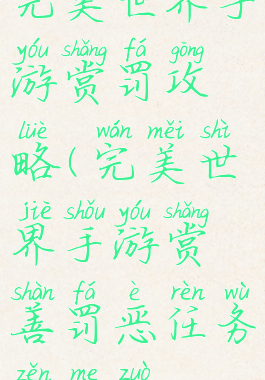 完美世界手
yóu shǎng fá gōng
游赏罚攻
lüè wán měi shì
略(完美世
jiè shǒu yóu shǎng
界手游赏
shàn fá è rèn wù
善罚恶任务
zěn me zuò